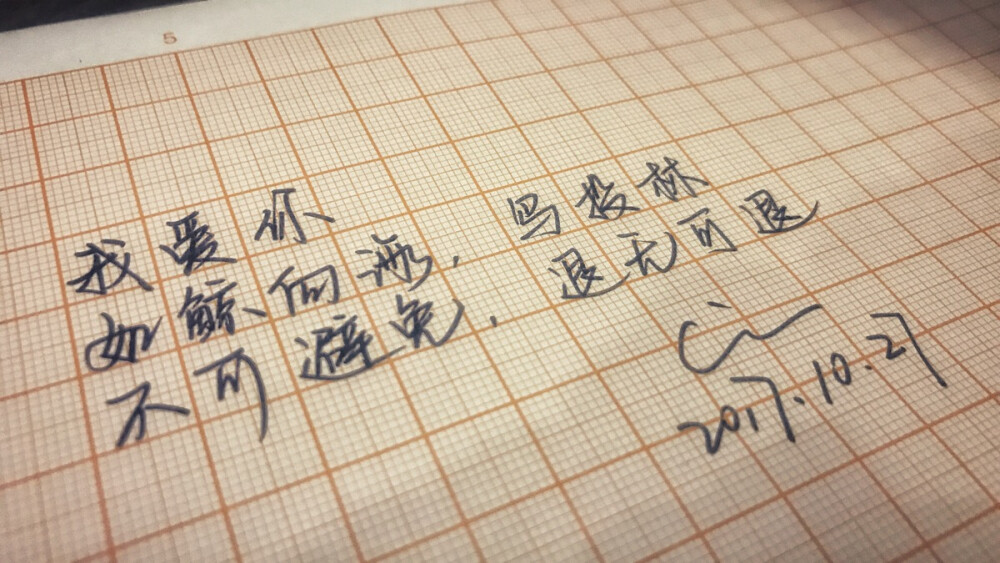 5
我爱你
如鲸向海，鸟投林
不可避免，退无可退
2017.10.27